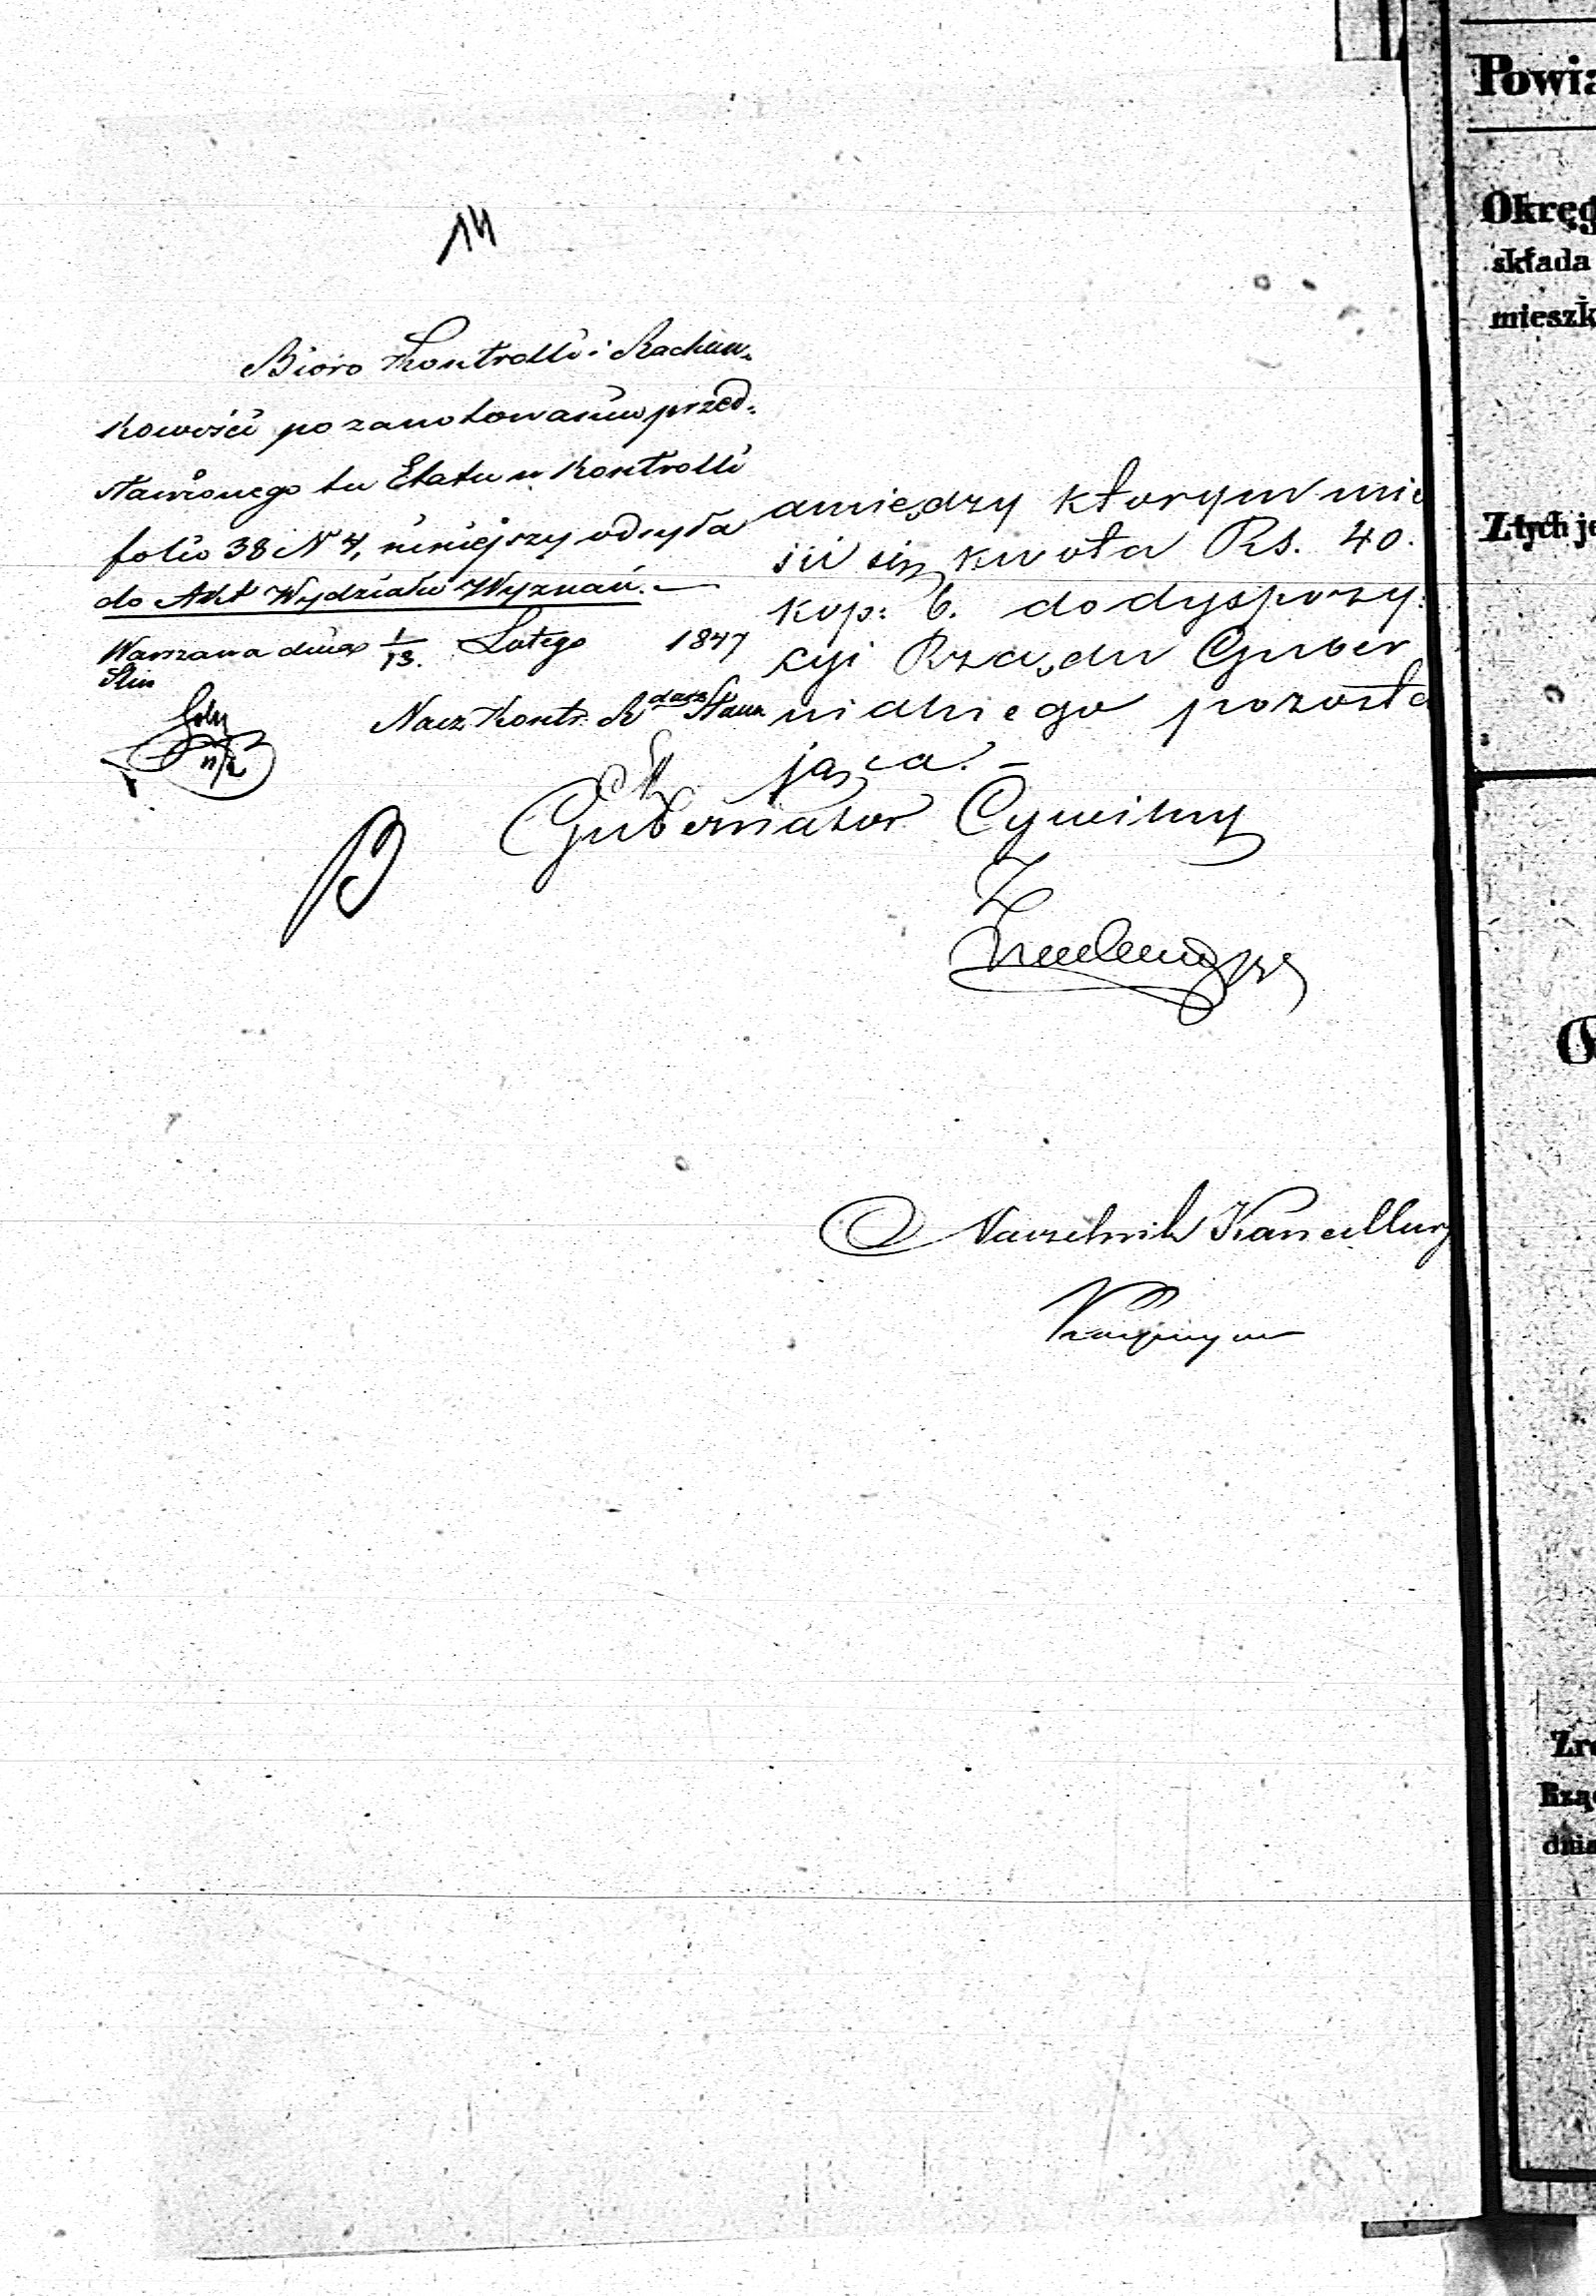 14
Bióro Kontrolli i Rachun-
kowości po zanotowaniu przed-
stawionego tu Etatu w Kontrolli
folio 38 N 4, niniejszy odsyła
do Akt Wydziału Wyznań.—
Warszawa dnia 1/13. Lutego 1847
Nacz. Kontr. R
amiędzy ktorym mie
ści się kwota Rs. 40.
kop: 6. do dyspozy:
cyi Rządu Guber
nialnego pozosta
jąca.—
Gubernator Cywilny
Naczelnik Kancellary
Powia
Okręg
składa
mieszk
Z tych je
O
Zro
Rzą
dnia